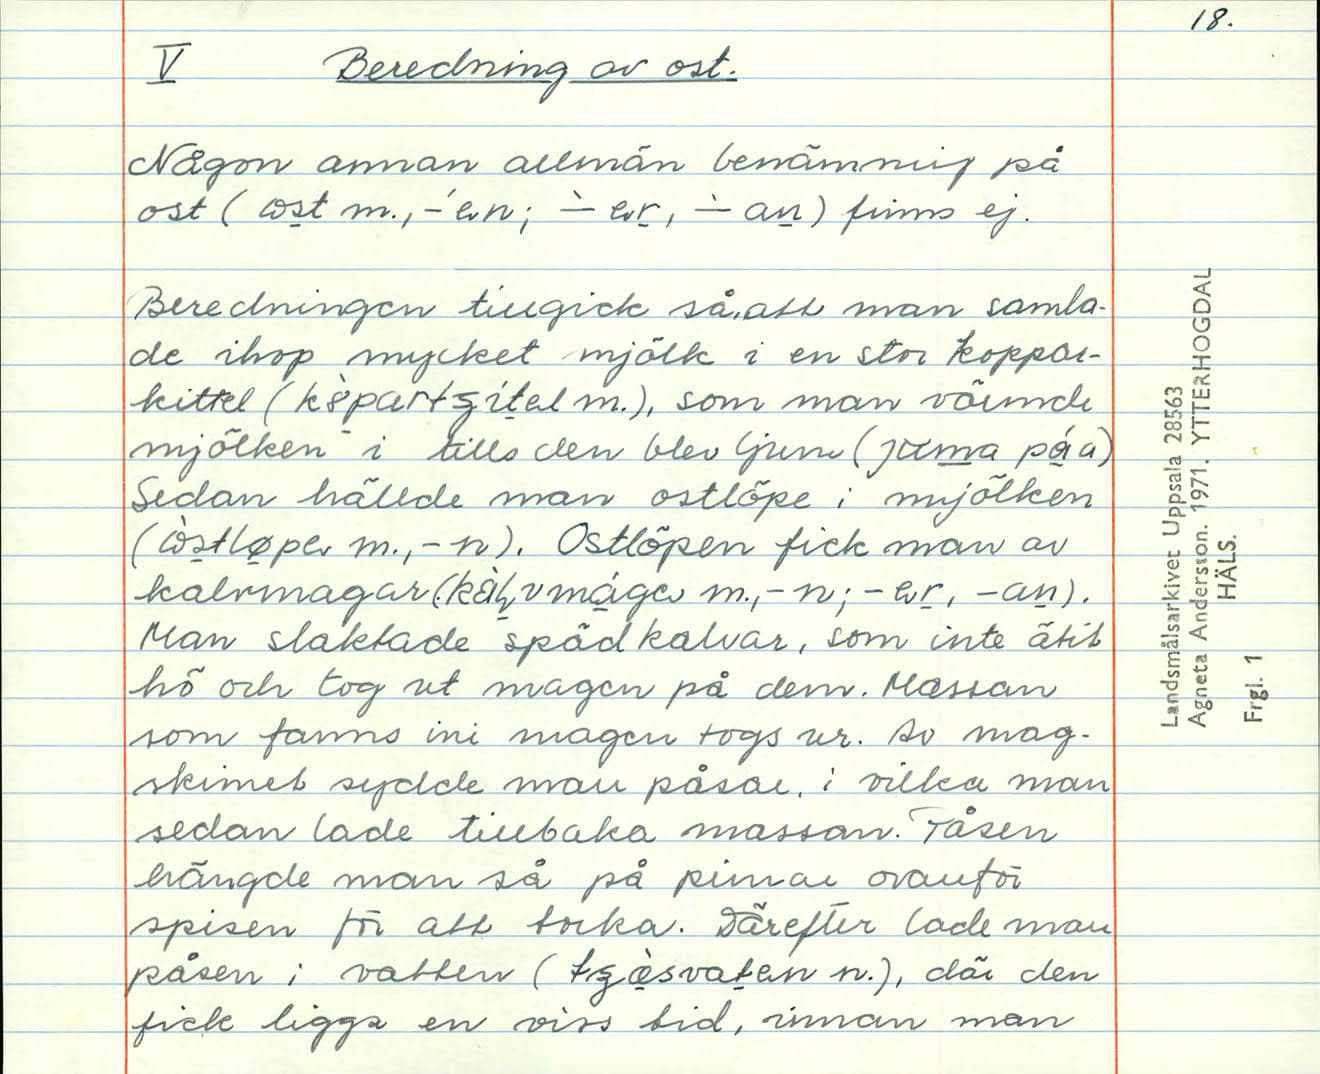 18.
V Beredning av ost.
Någon annan allmän benämning på
ost (ɷst m., -́ən; -̀ər, -̀an) finns ej.
Beredningen tillgick så, att man samla-
de ihop mycket mjölk i en stor koppar-
kittel ( m.), som man värmde
mjölken i tills den blev ljum (
Sedan hällde man ostlöpe i mjölken
( m., -n). Ostlöpen fick man av
kalvmagar ( m., -n; -ər, -an).
Man slaktade spädkalvar, som inte ätit
hö och tog ut magen på dem. Massan
som fanns ini magen togs ur. Av mag-
skinnet sydde man påsar, i vilka man
sedan lade tillbaka massan. Påsen
hängde man så på pinnar ovanför
spisen för att torka. Därefter lade man
påsen i vatten ( n.), där den
fick ligga en viss tid, innan man
Landsmålsarkivet Uppsala 28563
Agneta Andersson. 1971. YTTERHOGDAL
HÄLS.
Frgl. 1